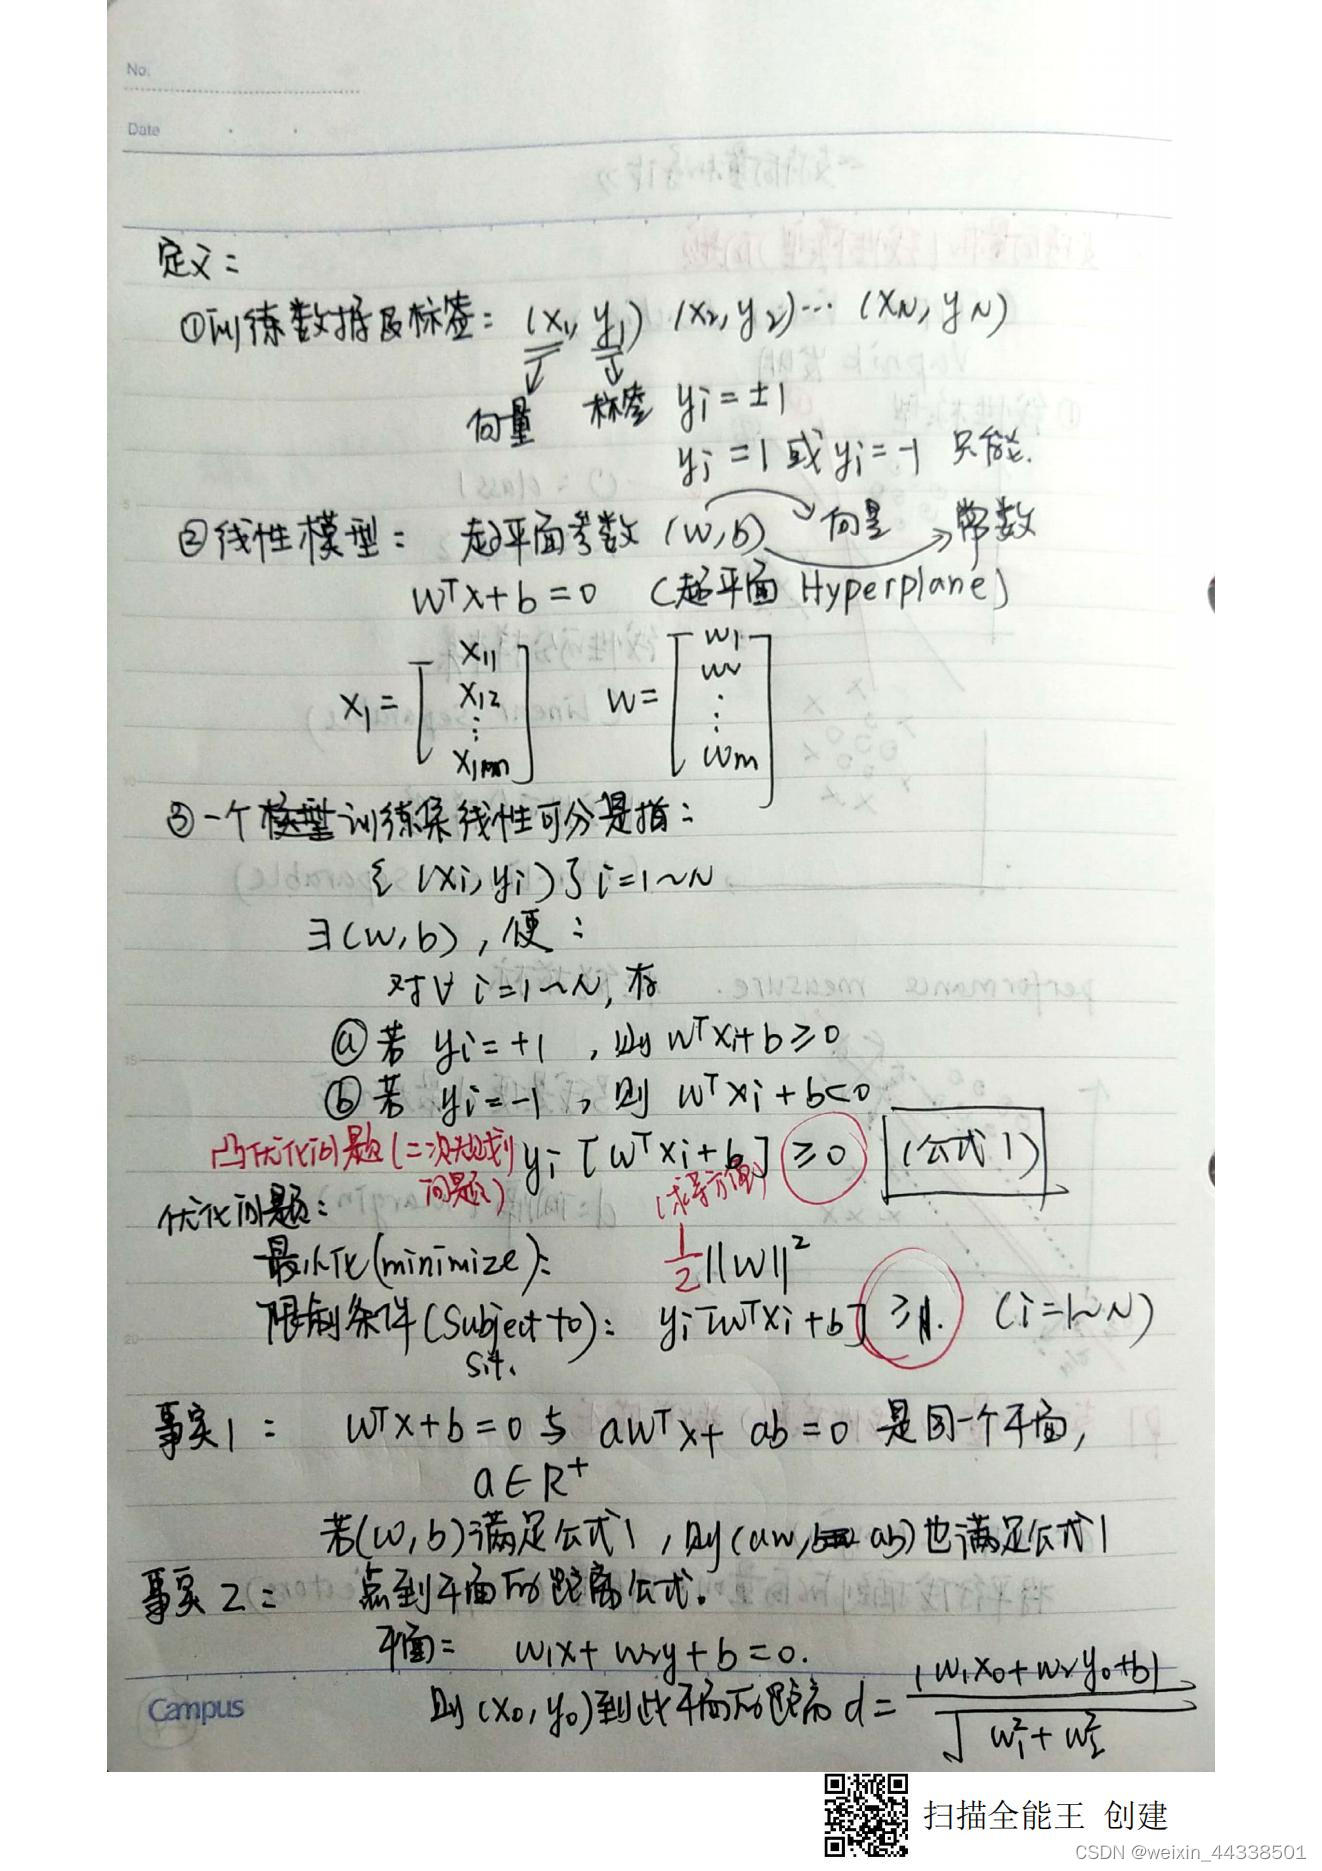 No.
Date
定义：
①训练数据及标签：(x₁, y₁) (x₂, y₂)… (x_N, y_N)
向量 标签 yᵢ = ±1
yᵢ = 1 或 yᵢ = -1 只能.
②线性模型： 超平面参数 (w, b) 向量 常数
wᵀx + b = 0 (超平面 Hyperplane)
x₁ = [x₁₁ x₁₂ ⋮ x₁ₘ] w = [w₁ w₂ ⋮ wₘ]
③一个模型训练集线性可分是指：
{(xᵢ, yᵢ)} i=1~N
∃(w, b), 使：
对∀ i=1~N, 有
ⓐ若 yᵢ = +1, 则 wᵀxᵢ + b ≥ 0
ⓑ若 yᵢ = -1, 则 wᵀxᵢ + b < 0
凸优化问题(二次规划问题) yᵢ[wᵀxᵢ + b] ≥ 0 (公式1)
优化问题： (求导方便)
最小化(minimize)： ½||w||²
限制条件(Subject to)： yᵢ[wᵀxᵢ + b] ≥ 1. (i=1~N)
s.t.
事实1： wᵀx + b = 0 与 awᵀx + ab = 0 是同一个平面,
a ∈ R⁺
若(w, b)满足公式1, 则(aw, ab)也满足公式1
事实2： 点到平面的距离公式。
平面： w₁x + w₂y + b = 0.
则(x₀, y₀)到此平面的距离 d = |w₁x₀ + w₂y₀ + b| / √(w₁² + w₂²)
Campus
扫描全能王 创建
CSDN @weixin_44338501